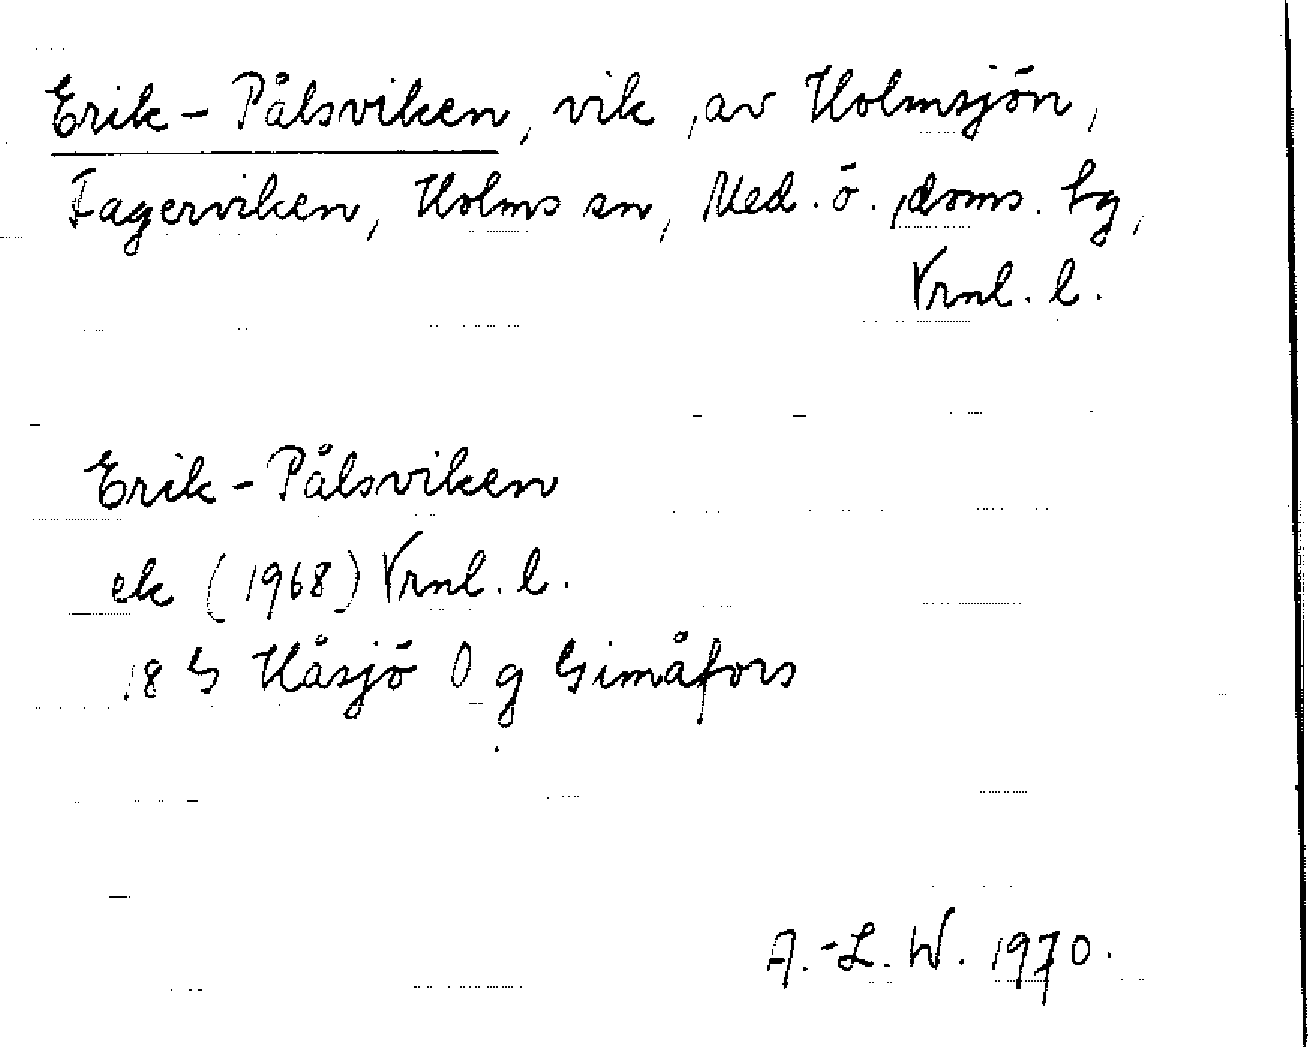 Erik-Pålsviken, vik, av Holmsjön,
Fagerviken, Holms sn, Med. ö. doms. hg,
Vrnl. l.
Erik-Pålsviken
ek (1968) Vrnl. l.
18 G Håsjö 0 g Gimåfors
A.-L. W. 1970.